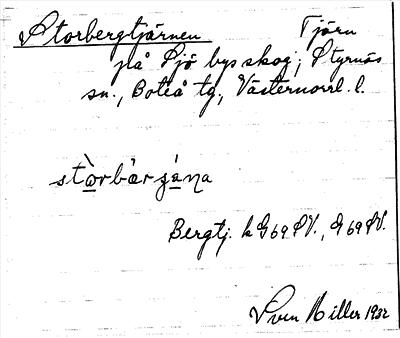 Storbergtjärnen Tjärn
på Sjö bys skog, Styrnäs
sn., Boteå tg, Västernorrl. l.
stòrbärjä́ṇa
Bergtj. k G69SV., G69SV.
Sven Hiller 1932